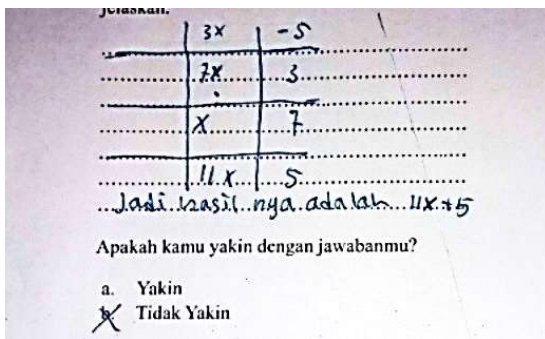 jelaskan.
3x -5
7x 3
x 7
11x 5
Jadi hasil nya adalah 11x+5
Apakah kamu yakin dengan jawabanmu?
a. Yakin
b. Tidak Yakin